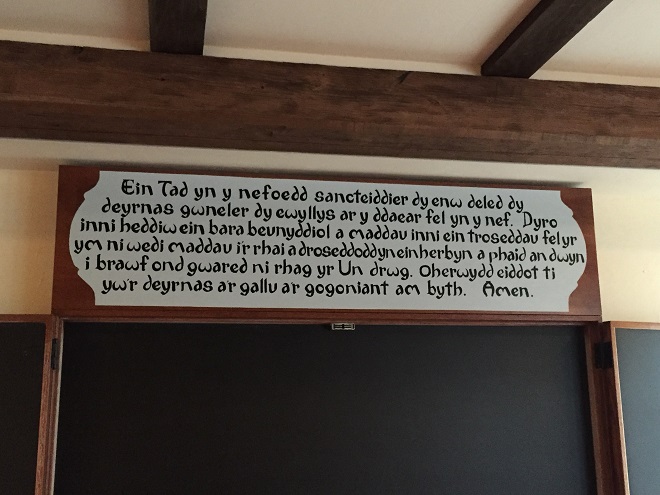 Ein Tad yn y nefoedd sancteiddier dy enw deled dy
deyrnas gwneler dy ewyllys ar y ddaear fel yn y nef. Dyro
inni heddiw ein bara beunyddiol a maddau inni ein troseddau fel yr
ym ni wedi maddau i'r rhai a droseddodd yn ein herbyn a phaid an dwyn
i brawf ond gwared ni rhag yr Un drwg. Oherwydd eiddot ti
yw'r deyrnas a'r gallu a'r gogoniant am byth. Amen.